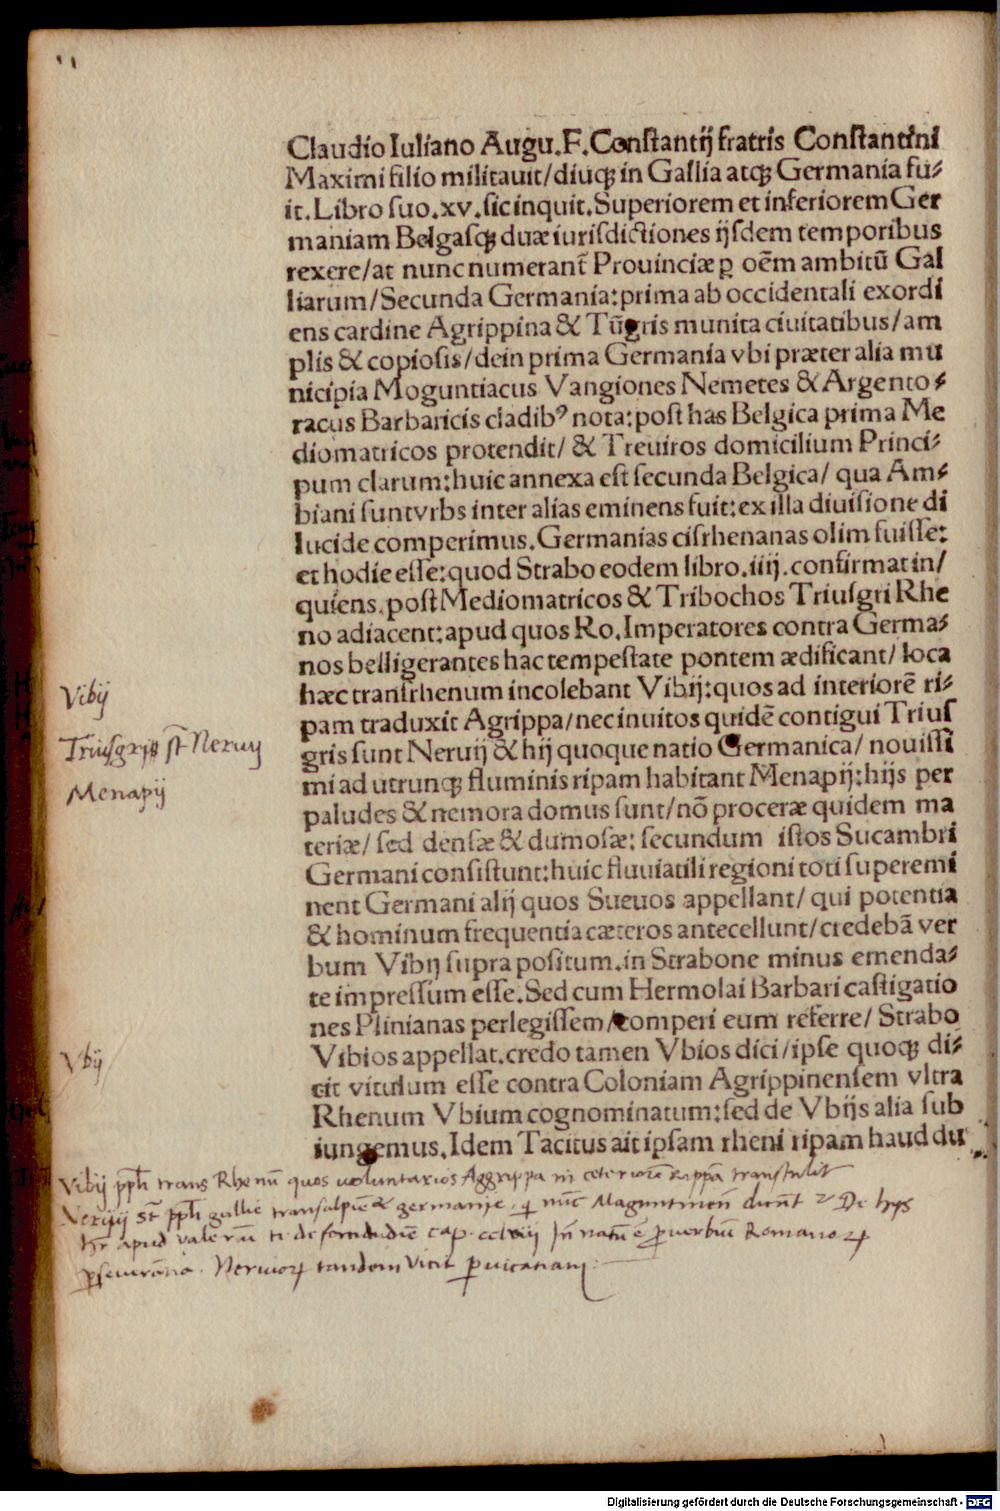 Claudio Iuliano Augu.F.Constantij fratris Constantini
Maximi filio militauit/diuqꝫ in Gallia atqꝫ Germania fu⸗
it.Libro suo.xv.sic inquit.Superiorem et inferiorem Ger
maniam Belgasqꝫ duæ iurisdictiones ijsdem temporibus
rexere/at nunc numerant̃ Prouinciæ ꝑ oẽm ambitũ Gal
liarum/Secunda Germania:prima ab occidentali exordi
ens cardine Agrippina & Tũgris munita ciuitatibus/am
plis & copiosis/dein prima Germania vbi præter alia mu
nicipia Moguntiacus Vangiones Nemetes & Argento⸗
racus Barbaricis cladibꝰ nota:post has Belgica prima Me
diomatricos protendit/ & Treuiros domicilium Princi⸗
pum clarum:huic annexa est secunda Belgica/ qua Am⸗
biani sunt vrbs inter alias eminens fuit:ex illa diuisione di
lucide comperimus.Germanias cisrhenanas olim fuisse:
et hodie esse:quod Strabo eodem libro.iiij.confirmat in/
quiens.post Mediomatricos & Tribochos Triusgri Rhe
no adiacent:apud quos Ro.Imperatores contra Germa⸗
nos belligerantes hac tempestate pontem ædificant/ loca
hæc transrhenum incolebant Vibij:quos ad interiorẽ ri⸗
pam traduxit Agrippa/nec inuitos quidẽ contigui Trius
gris sunt Neruij & hij quoque natio Germanica/ nouissi
mi ad utrunqꝫ fluminis ripam habitant Menapij:hijs per
paludes & nemora domus sunt/nõ proceræ quidem ma
teriæ/ sed densæ & dumosæ: secundum istos Sucambri
Germani consistunt:huic fluuiatili regioni toti superemi
nent Germani alij quos Sueuos appellant/ qui potentia
& hominum frequentia cæteros antecellunt/credebã ver
bum Vibij supra positum.in Strabone minus emenda⸗
te impressum esse.Sed cum Hermolai Barbari castigatio
nes Plinianas perlegissem/comperi eum referre/ Strabo
Vibios appellat.credo tamen Vbios dici/ipse quoqꝫ di⸗
cit vitulum esse contra Coloniam Agrippinensem vltra
Rhenum Vbium cognominatum:sed de Vbijs alia sub
iungemus.Idem Tacitus ait ipsam rheni ripam haud du
Vibij
Triusgris st̃ Neruij
Menapij
Vbij
Vibij pph̃ trans Rhenũ quos voluntarios Aggrippa in citeriorẽ rippã transtulit
Neruij st̃ pph̃ gallie transalpine & germanije. nũc Maguntinen̄ dicũt De hijs
apud vale cap. natũ ē ꝓuerbiũ Romanoꝝ
ꝑseuerancia. Neruioꝝ tandem vicit ꝑuicatiam:
Digitalisierung gefördert durch die Deutsche Forschungsgemeinschaft - DFG